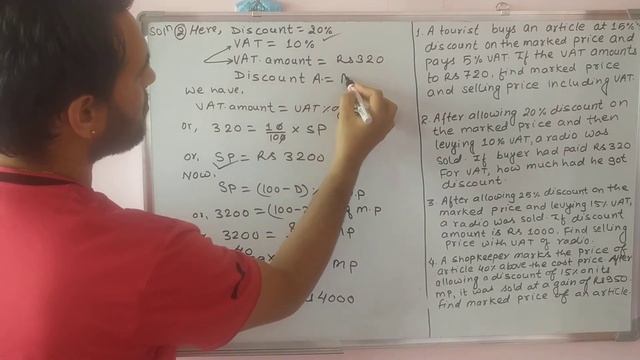 Soln ② Here, Discount = 20%
VAT = 10%
VAT amount = Rs 320
Discount A =
We have,
VAT amount = VAT %
or, 320 = 10/100 × SP
or, SP = Rs 3200
Now,
SP = (100-D) M.P
or, 3200 = (100- of M.P
3200 =
40
MP
4000
1. A tourist buys an article at 15%
discount on the marked price and
pays 5% VAT. If the VAT amounts
to Rs 720, find marked price
and selling price including VAT.
2. After allowing 20% discount on
the marked price and then
levying 10% VAT, a radio was
sold. If buyer had paid Rs 320
For VAT, how much had he got
discount.
3. After allowing 25% discount on the
marked price and levying 15% VAT,
a radio was sold. If discount
amount is Rs 1000. Find selling
price with VAT of radio.
4. A shopkeeper marks the price of
article 40% above the cost price. After
allowing a discount of 15% on its
MP, it was sold at a gain of Rs 950
Find marked price of an article